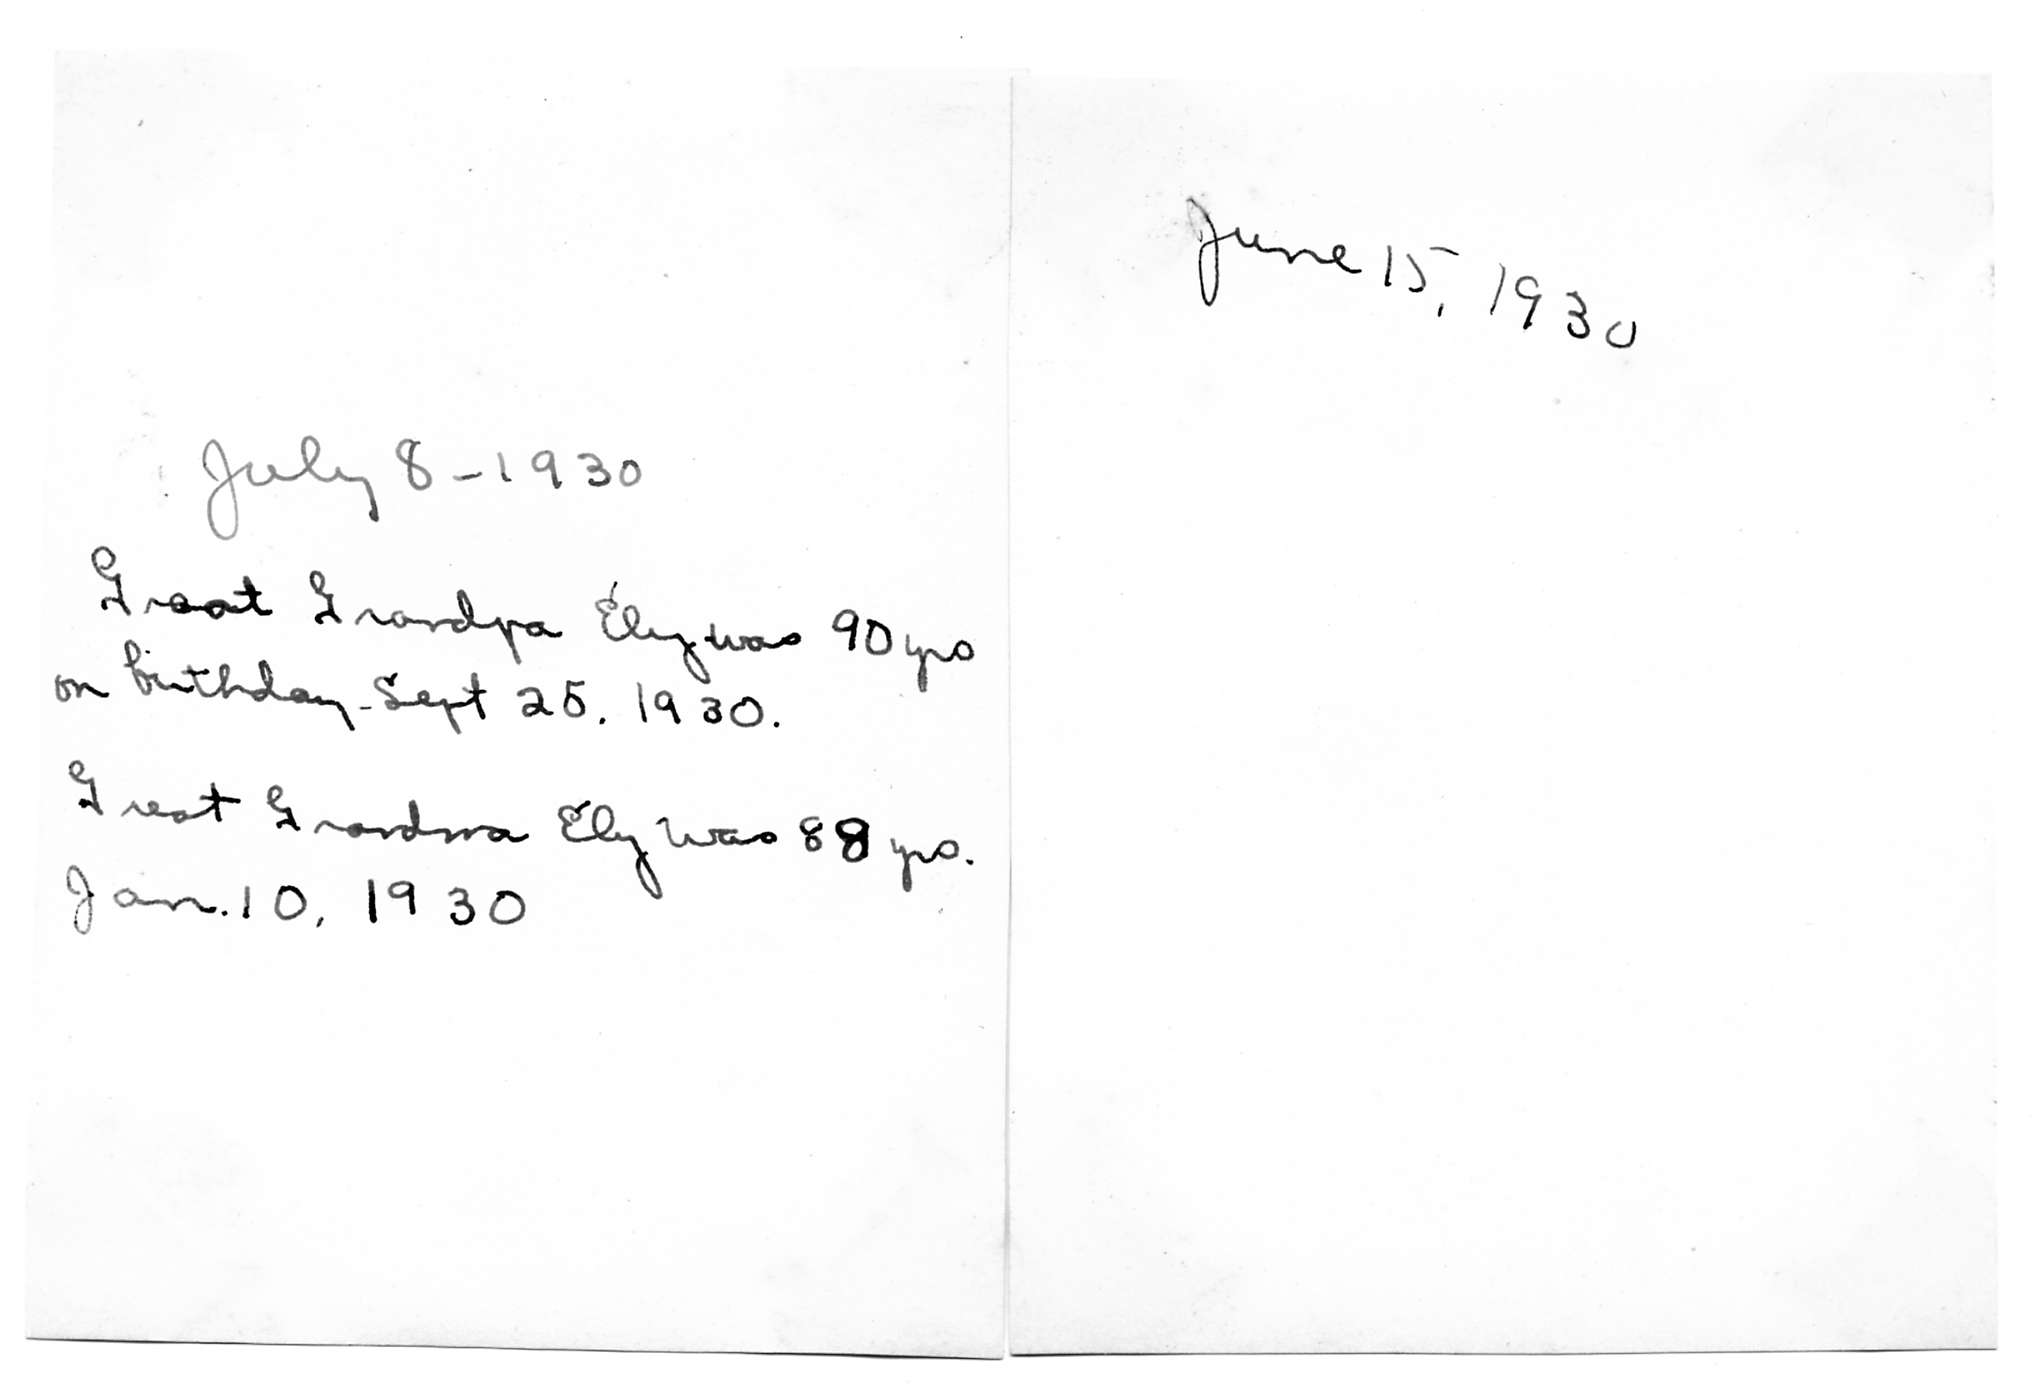 July 8-1930
Great Grandpa Ely was 90 yrs
on birthday - Sept 25, 1930.
Great Grandma Ely was 88 yrs.
Jan. 10, 1930
June 15, 1930